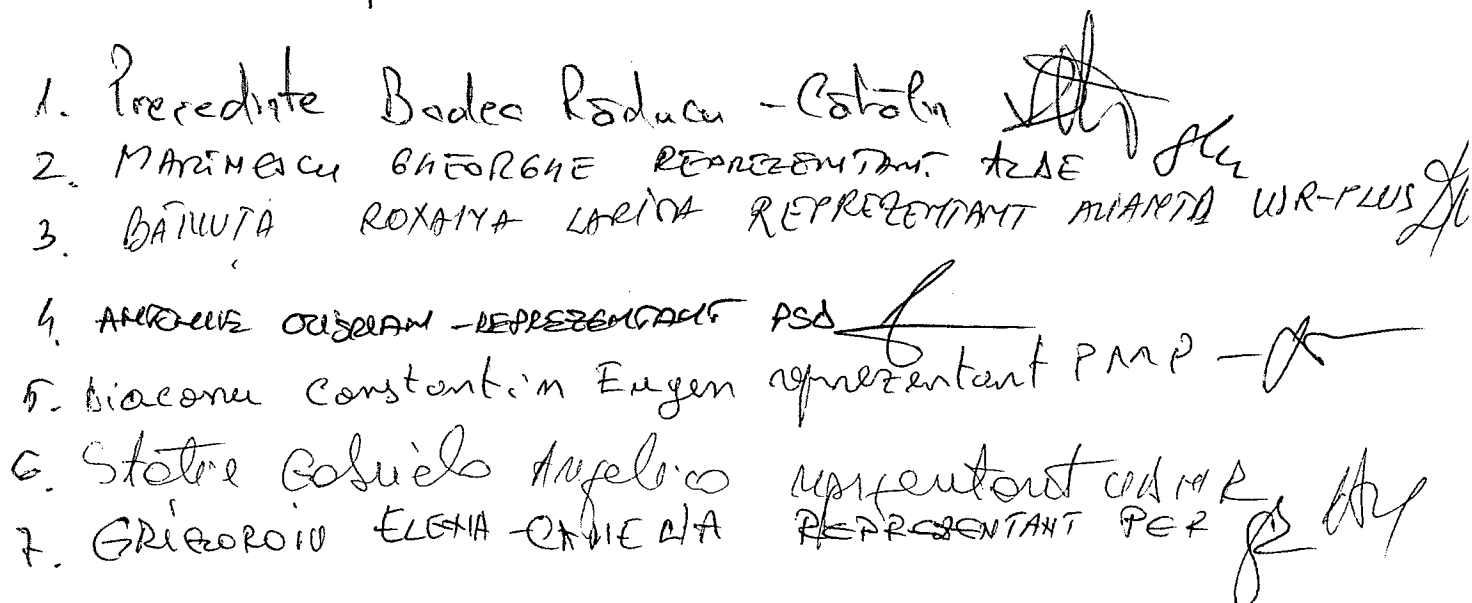 1. Precedinte Badea Răducu - Cătălin
2. MARINESCU GHEORGHE REPREZENTANT ALDE
3. BĂNUȚĂ ROXANA LARISA REPREZENTANT ALIANȚA USR-PLUS
4. ANTONIE - REPREZENTANT PSD
5. Diaconu Constantin Eugen reprezentant PMP -
6. Statie Gabriela Angelica reprezentant UDMR
7. GRIGOROIU ELENA - CAMELIA REPREZENTANT PER